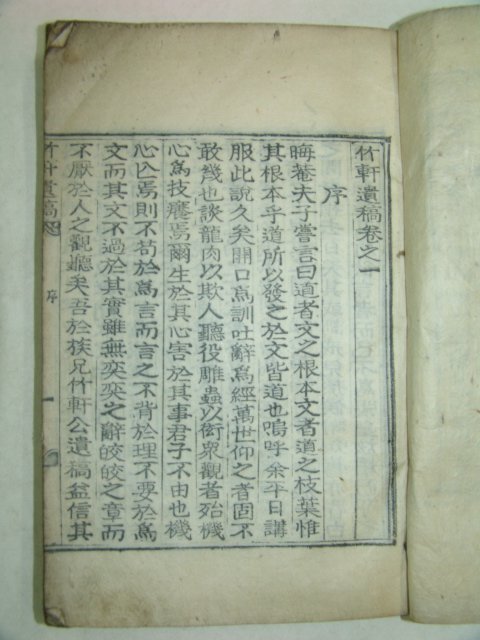 竹軒遺稿卷之一
序
晦菴夫子嘗言曰道者文之根本文者道之枝葉惟
其根本乎道所以發之於文皆道也嗚呼余平日講
服此說久矣開口爲訓吐辭爲經萬世仰之者固不
敢幾也談龍肉以欺人聽役雕蟲以衒衆觀者殆機
心爲技癢焉爾生於其心害於其事君子不由也機
心亡焉則不苟於爲言而言之不背於理不要於爲
文而其文不過於其實雖無奕奕之辭皎皎之章而
不厭於人之觀聽矣吾於族兄竹軒公遺稿益信其
竹軒遺稿
序
一